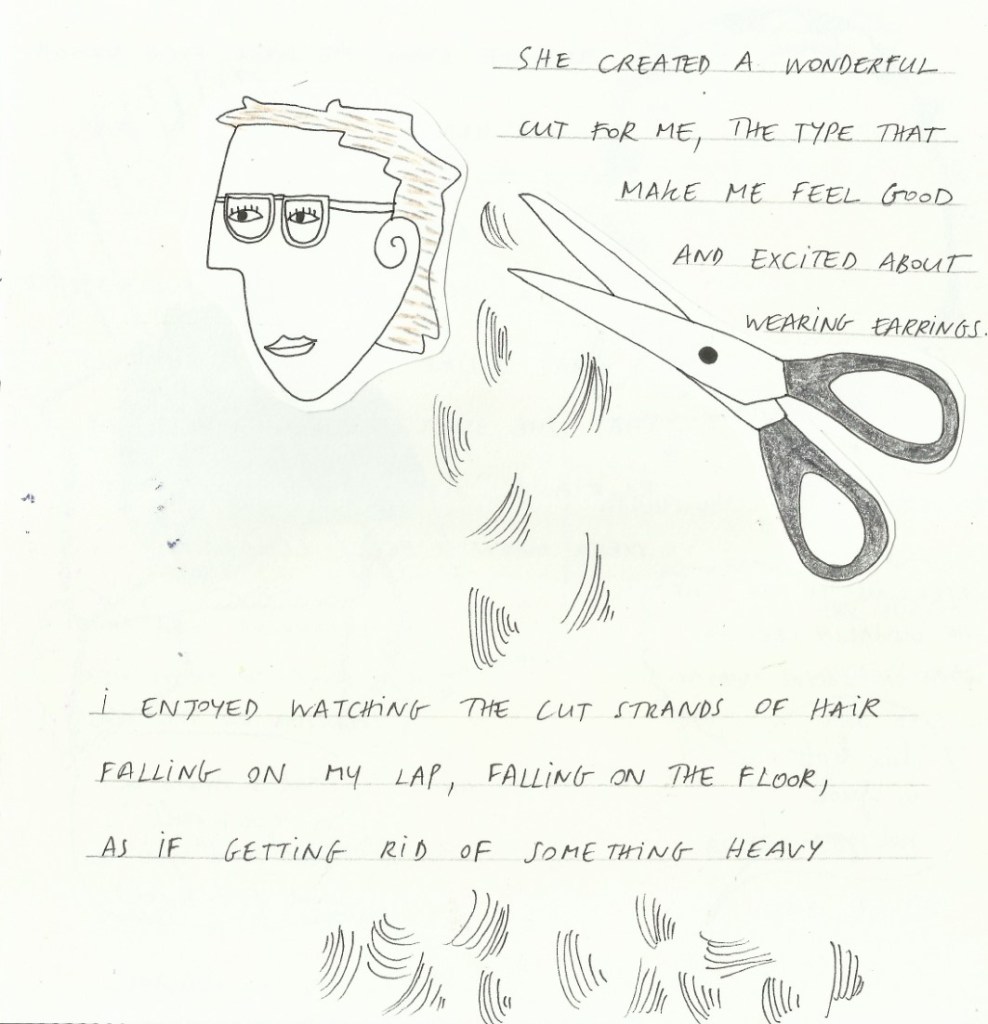 SHE CREATED A WONDERFUL
CUT FOR ME, THE TYPE THAT
MAKE ME FEEL GOOD
AND EXCITED ABOUT
WEARING EARRINGS.
I ENJOYED WATCHING THE CUT STRANDS OF HAIR
FALLING ON MY LAP, FALLING ON THE FLOOR,
AS IF GETTING RID OF SOMETHING HEAVY